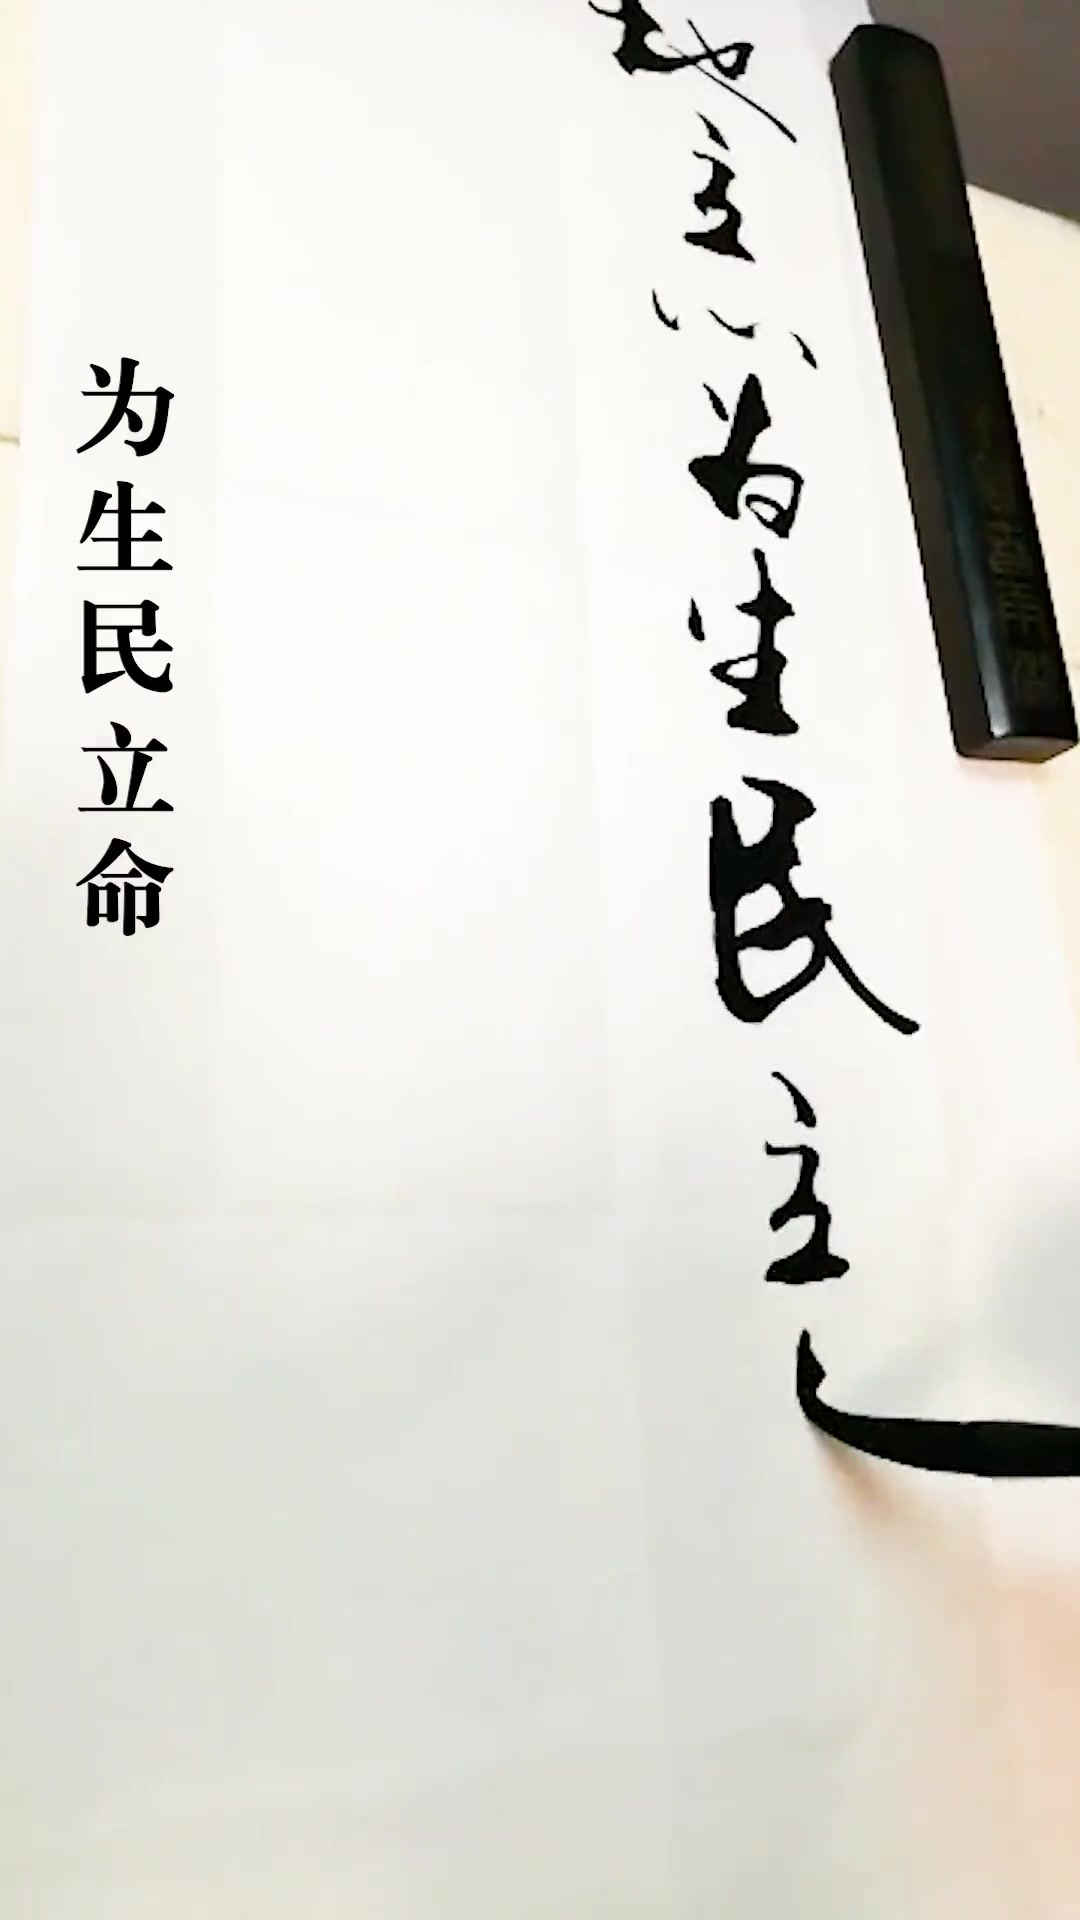 地立心为生民立
为生民立命